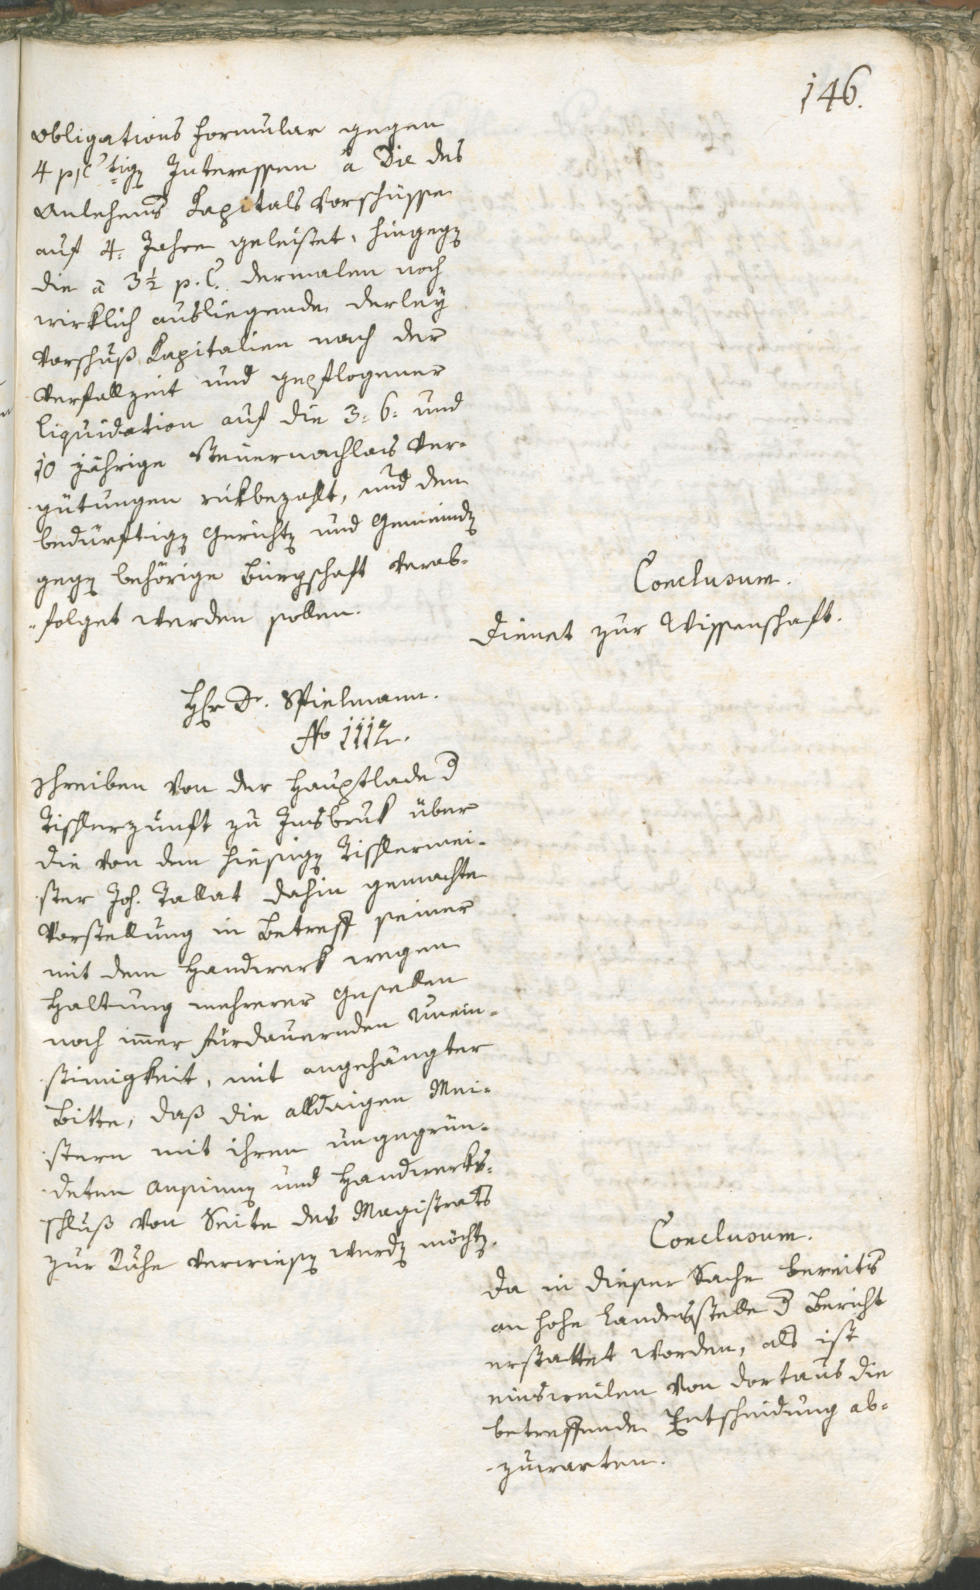 146.
Obligations Formular gegen
4 pC tige Interessen a Die des
Anlehens Kapitals Vorschüsse
auf 4. Jahre geleistet, hingegen
die a 3½ p.C. dermalen noch
wirklich ausliegende derley
Vorschuß Kapitalien nach der
Verfallzeit und gepflogener
Liquidation auf die 3= 6= und
10 jährige Steuernachlas Ver-
gütungen rükbezahlt, und dem
bedürftigen Gerichten und Gemeinden
gegen behörige Bürgschaft verab-
folget werden sollen.
Conclusum.
Dienet zur Wissenschaft.
Hr Dr. Spielmann.
No 1112.
Schreiben von der Hauptlade d
Tischlerzunft zu Insbruk über
die von dem hiesigen Tischlermei-
ster Joh. Tallat dahin gemachte
Vorstellung in Betreff seiner
mit dem Handwerk wegen
Haltung mehrerer Gesellen
noch imer fürdauernden Unein-
stimigkeit, mit angehängter
Bitte, daß die alldaigen Mei-
stern mit ihrem ungegrün-
deten Ansinnen und Handwerks-
schluß von Seite des Magistrats
zur Ruhe verwiesen werden möchten.
Conclusum.
Da in dieser Sache bereits
an hohe Landesstelle d Bericht
erstattet worden, als ist
einsweilen von dortaus die
betreffende Entscheidung ab-
zuwarten.